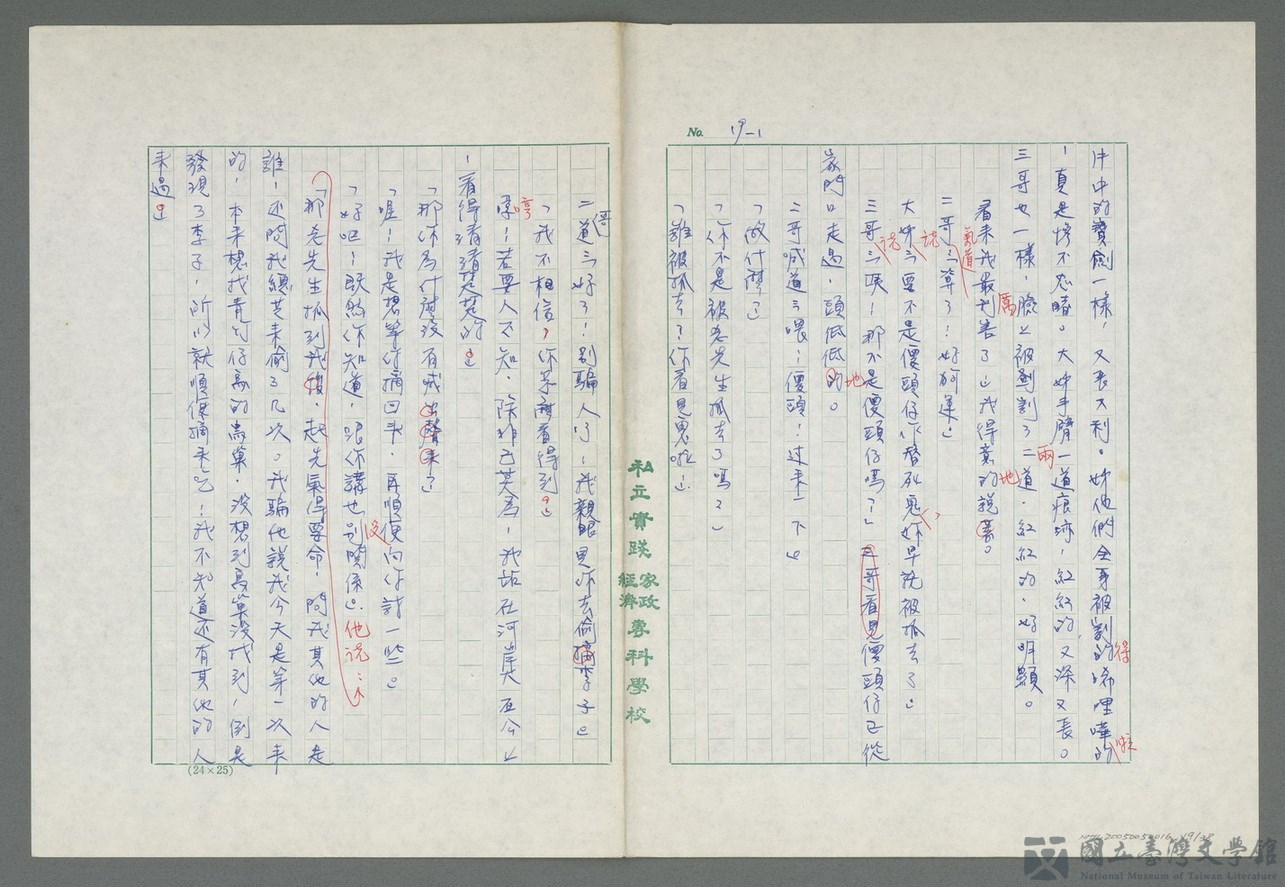 No. 19-1
片中的寶劍一樣，又長又利。她他們全身被割得唏哩嘩啦
，真是慘不忍睹。大姊手臂兩道痕跡，紅紅的又深又長。
三哥也一樣，臉上被劃割了二道，紅紅地，好明顯。
看來我最厲害了」我得意的說著。
二哥氣道：算了！好狗運」
大姊說：要不是傻頭仔作替死鬼，妳早就被抓去了」
三哥說：咦！那不是傻頭仔嗎？」三哥看見傻頭仔正從
家門口走過，頭低低地。
二哥喊道：喂！傻頭！過來一下」
「做什麼」
「你不是被老先生抓去了嗎？」
「誰被抓去？你看見鬼啦」
二哥道：好了！別騙人了！我親眼見你去偷摘李子」
「我不相信，你家看得到？」
哼！若要人不知，除非己莫為，我站在河岸大石公上
，看得清清楚楚的。」
「那你為什麼沒有喊出聲來」
「喔！我是想等你摘回來，再順便向你討一些。」
「好吧！既然你知道，跟你講也沒關係」他說：
「那老先生抓到我後，起先氣得要命，問我其他的人是
誰，还問我總共來偷了几次。我騙他說我今天是第一次來
的，本來想找青行仔鳥的鳥巢，沒想到鳥巢沒找到，倒是
發現了李子，所以就順便摘來吃！我不知道还有其他的人
來過。」
(24×25)
私立實踐家政經濟專科學校
國立臺灣文學館
National Museum of Taiwan Literature